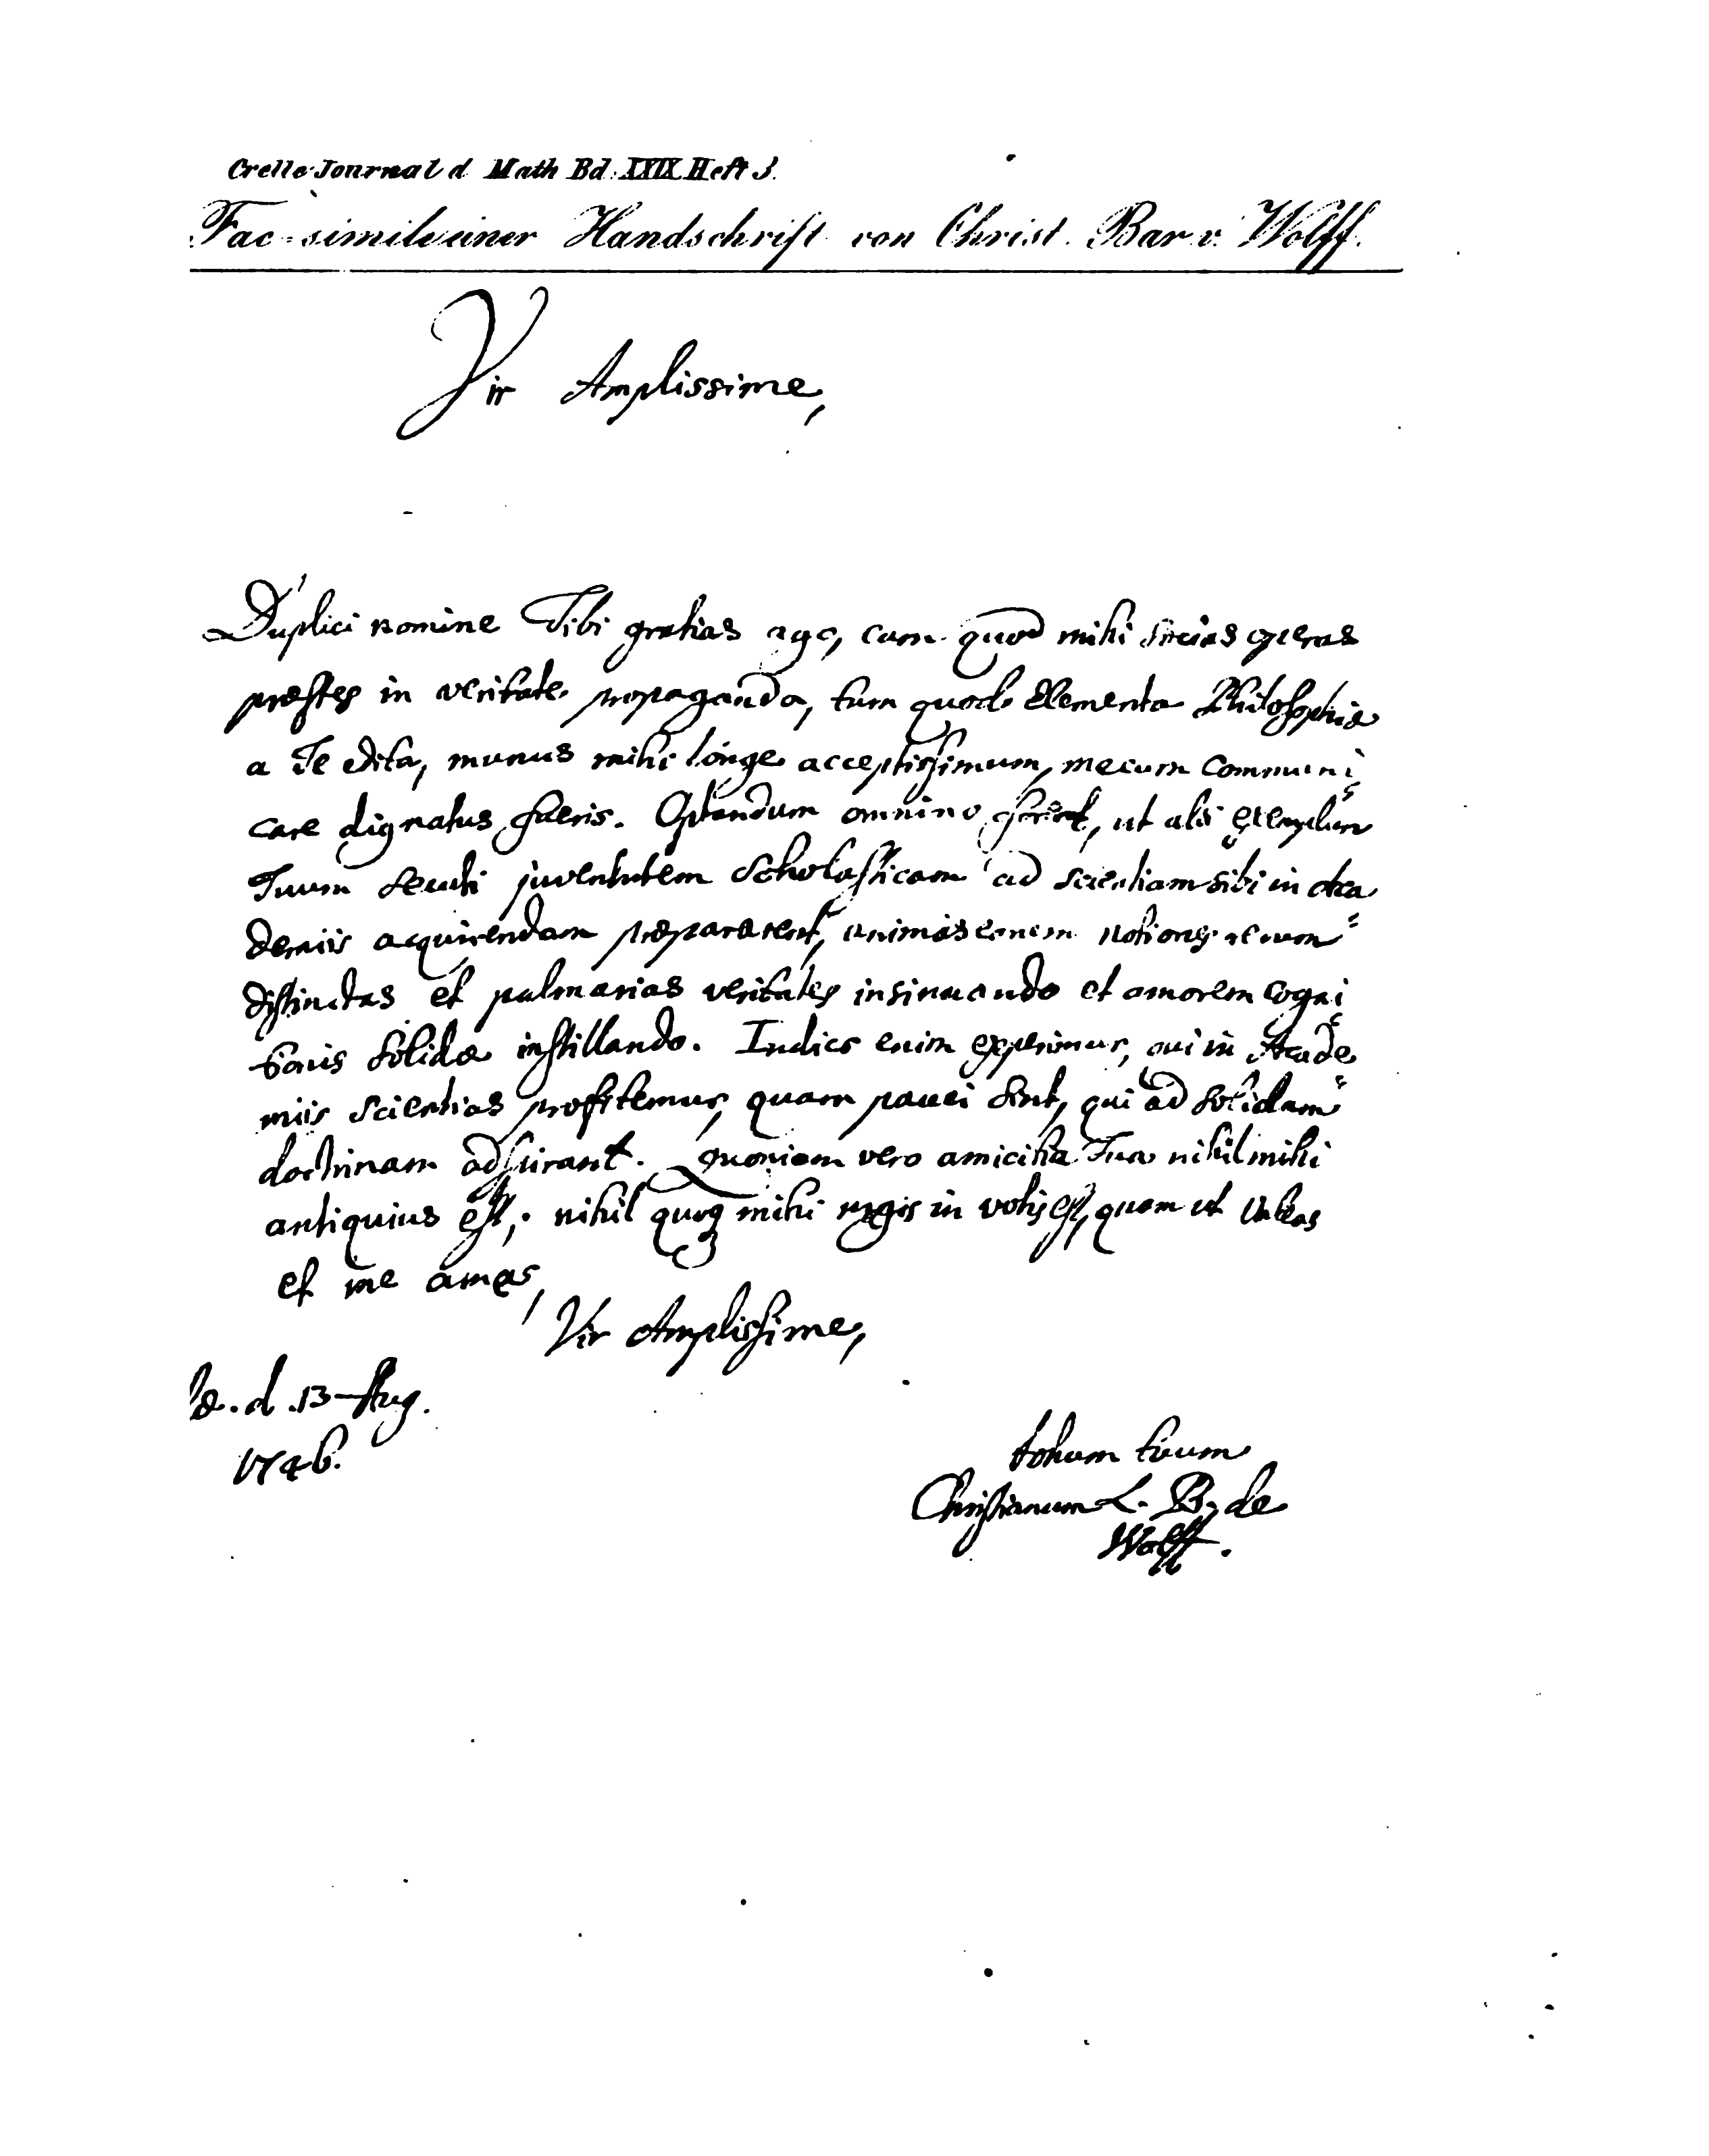 Crelle Journal d Math Bd. XXIX Heft 3.
Fac-simile einer Handschrift von Christ. Bar. v. Wolff.
Vir Amplissime,
Duplici nomine Tibi gratias ago, cum quod mihi socias operas
præstes in veritate propaganda, tum quod Elementa Philosophiæ
a Te edita, munus mihi longe acceptissimum, mecum communi
care dignatus fueris. Optandum omnino foret, ut alii exemplum
Tuum secuti juventutem scholasticam ad scientiam sibi in Aca
demiis acquirendam præpararent, animis notiones rerum
distinctas et palmarias veritates insinuando et amorem cogni
tionis solidæ instillando. Indies enim experimur, qui in Acade
miis scientias profitemur, quam pauci sint, qui ad solidam
doctrinam adspirant. Quoniam vero amicitia Tua nihil mihi
antiquius est; nihil quoq mihi magis in votis est, quam ut valeas
et me ames,
Vir Amplissime,
d. 13 Aug.
1746.
totum tuum
Christianum L. B. de
Wolff.